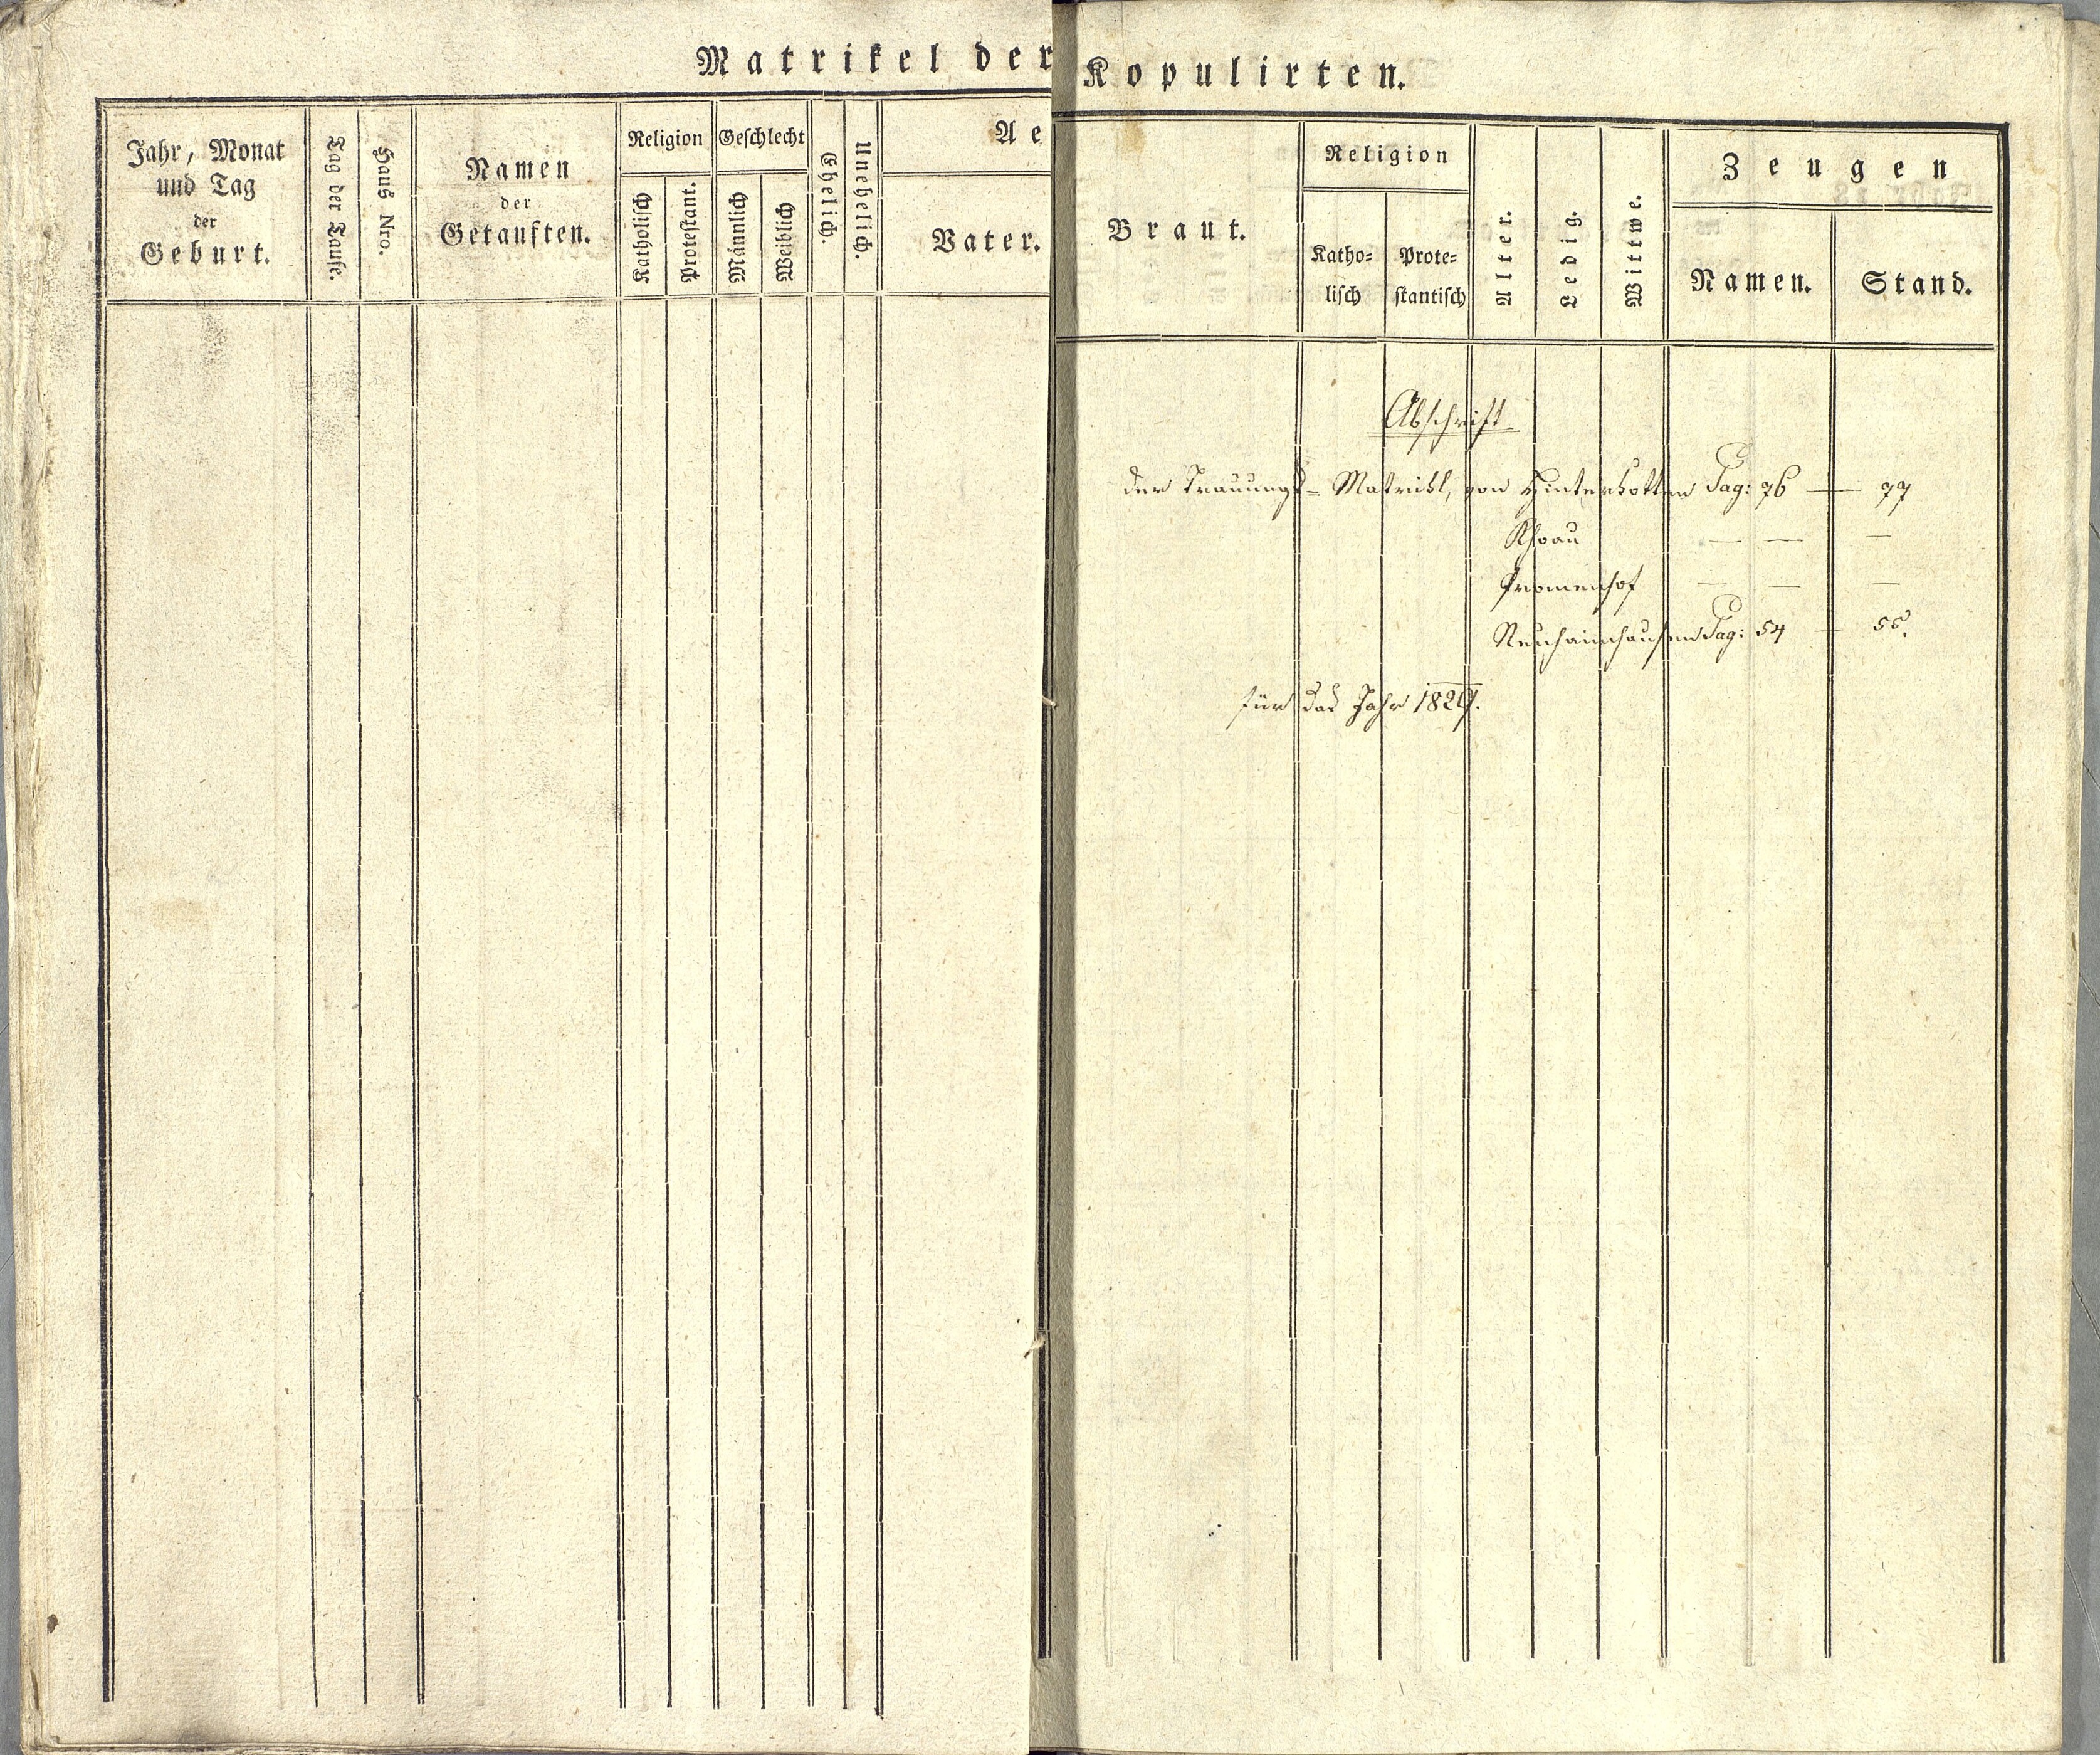 Matrikel der
Jahr, Monat
und Tag
der
Geburt.
Tag der Taufe.
Haus Nro.
Namen
der
Getauften.
Religion
Katholisch
Protestant.
Geschlecht
Männlich
Weiblich
Ehelich.
Unehelich.
Ae
Vater.
Kopulirten.
Braut.
Religion
Katho=
lisch
Prote=
stantisch
Alter.
Ledig.
Wittwe.
Zeugen
Namen.
Stand.
Abschrift
der Trauungs=Matrikl, von Hinterkotten Pag: 76 — 77
Khoau — — —
Promenhof — — —
Neuhaimhausen Pag: 54 — 55.
für das Jahr 1829.